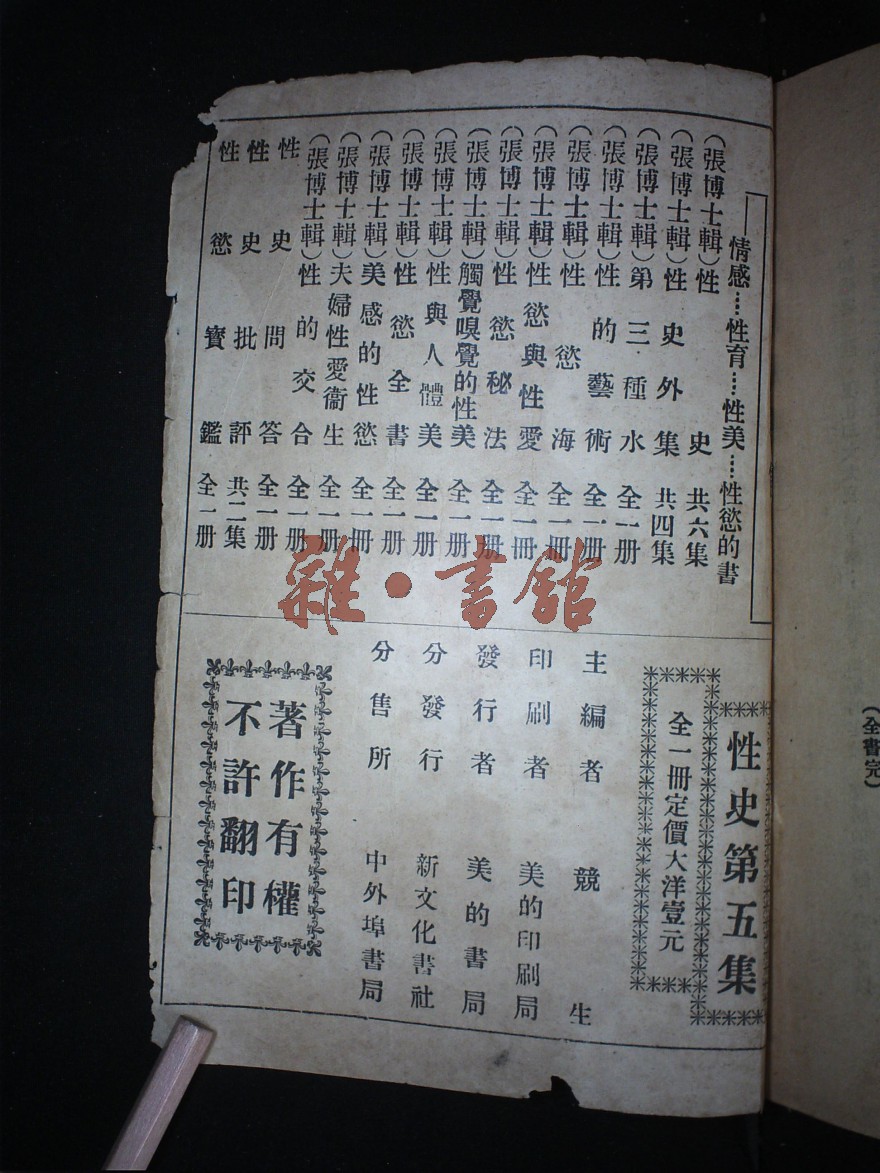 情感……性育……性美……性慾的書
（張博士輯）性史 共六集
（張博士輯）性史外集 共四集
（張博士輯）第三種水 全一册
（張博士輯）性的藝術 全一册
（張博士輯）性慾海 全一册
（張博士輯）性慾與性愛 全一冊
（張博士輯）性慾秘法 全一册
（張博士輯）觸覺嗅覺的性美 全一册
（張博士輯）性與人體美 全一册
（張博士輯）性慾全書 全一册
（張博士輯）美感的性慾 全一冊
（張博士輯）夫婦性愛衞生 全一册
（張博士輯）性的交合 全一册
性史問答 全一册
性史批評 共二集
性慾寶鑑 全一册
性史第五集
全一冊定價大洋壹元
主編者 競生
印刷者 美的印刷局
發行者 美的書局
分發行 新文化書社
分售所 中外埠書局
著作有權
不許翻印
（全書完）
雜·書館